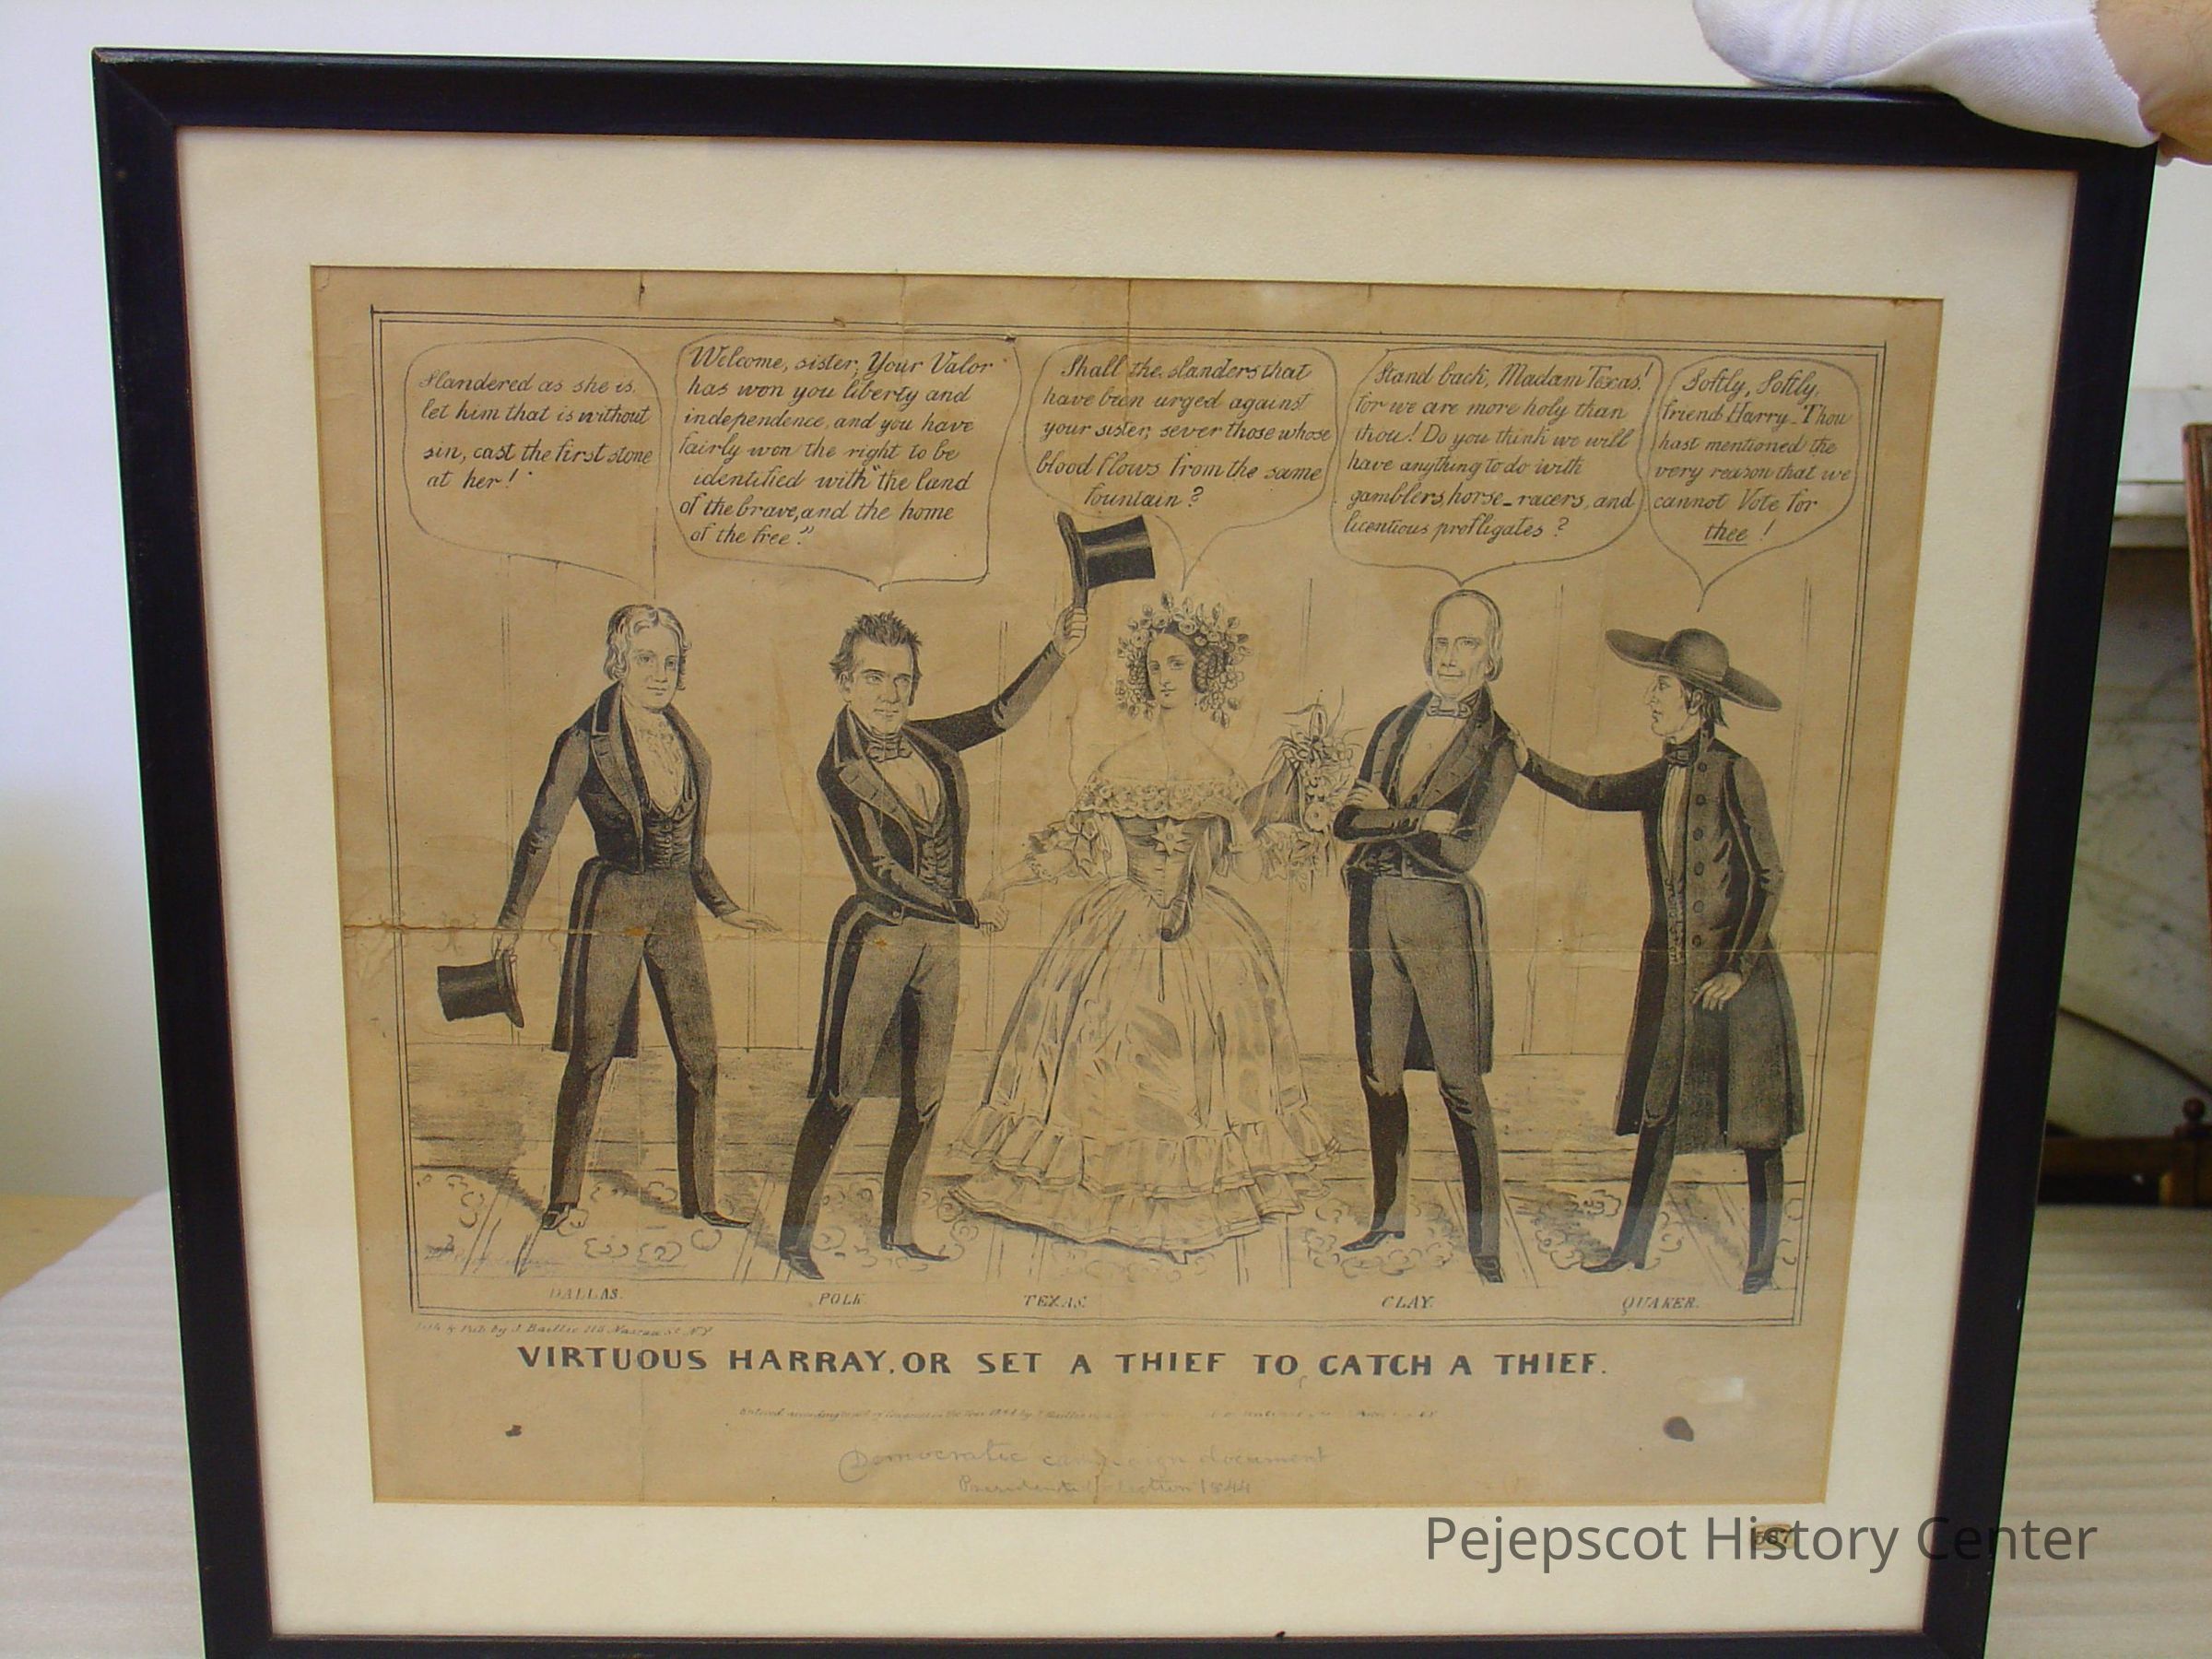 Slandered as she is,
let him that is without
sin, cast the first stone
at her!
Welcome, sister, Your Valor
has won you liberty and
independence, and you have
fairly won the right to be
identified with "the land
of the brave, and the home
of the free."
Shall the slanders that
have been urged against
your sister, sever those whose
blood flows from the same
fountain?
Stand back, Madam Texas!
for we are more holy than
thou! Do you think we will
have anything to do with
gamblers, horse-racers, and
licentious profligates?
Softly, Softly,
friend Harry. Thou
hast mentioned the
very reason that we
cannot Vote for
thee!
DALLAS.
POLK
TEXAS.
CLAY.
QUAKER.
Lith. & Pub. by J. Baillie 118 Nassau St. NY
VIRTUOUS HARRAY, OR SET A THIEF TO CATCH A THIEF.
Entered according to act of Congress in the Year 1844 by J. Baillie
Democratic campaign document
Presidential Election 1844
587
Pejepscot History Center